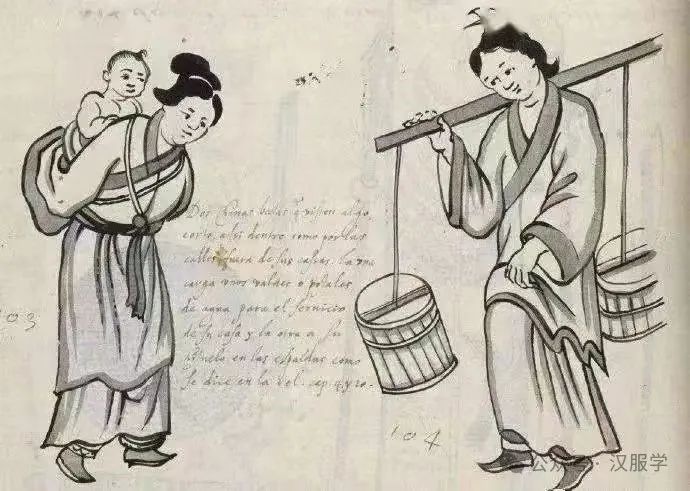 Dos chinas bajas q̃ visten algo
corto, assi dentro como por las
calles fuera de sus casas. La una
carga unos valdes o potales
de agua para el servicio
de su casa y la otra a su
en las espaldas como
se dice en la del. cap.
103
104
公众号 · 汉服学